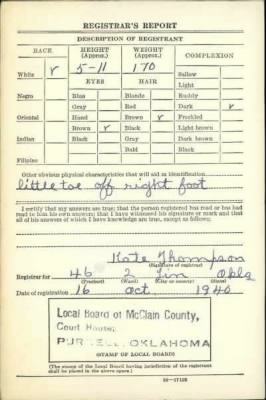 REGISTRAR'S REPORT
DESCRIPTION OF REGISTRANT
RACE HEIGHT (Approx.) WEIGHT (Approx.) COMPLEXION
5-11 170 Sallow
White ✓ EYES HAIR Light
Negro Blue Blonde Ruddy
Gray Red Dark ✓
Oriental Hazel Brown ✓ Freckled
Brown ✓ Black Light brown
Indian Black Gray Dark brown
Bald Black
Filipino
Other obvious physical characteristics that will aid in identification
little toe off right foot
I certify that my answers are true; that the person registered has read or has had
read to him his own answers; that I have witnessed his signature or mark and that
all of his answers of which I have knowledge are true, except as follows:
Kate Thompson
(Signature of registrar)
Registrar for 46 2 Okla
(Precinct) (Ward) (City or county) (State)
Date of registration 16 Oct. 1940
Local Board of McClain County,
Court House,
PURCELL, OKLAHOMA
(STAMP OF LOCAL BOARD)
(The stamp of the Local Board having jurisdiction of the registrant
shall be placed in the above space.)